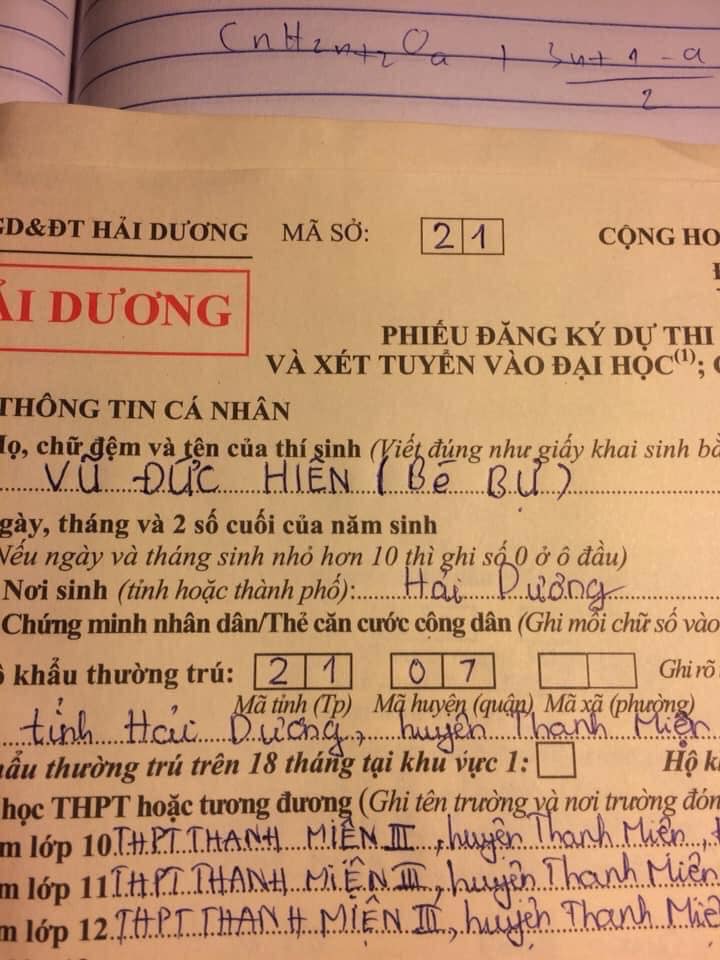 CnH2n+2Oa + 3n+1-a
2
GD&ĐT HẢI DƯƠNG MÃ SỞ: 21 CỘNG HO
ẢI DƯƠNG
PHIẾU ĐĂNG KÝ DỰ THI
VÀ XÉT TUYỂN VÀO ĐẠI HỌC(1); C
THÔNG TIN CÁ NHÂN
Họ, chữ đệm và tên của thí sinh (Viết đúng như giấy khai sinh bằ
VŨ ĐỨC HIỀN (Bé Bự)
gày, tháng và 2 số cuối của năm sinh
Nếu ngày và tháng sinh nhỏ hơn 10 thì ghi số 0 ở ô đầu)
Nơi sinh (tỉnh hoặc thành phố): Hải Dương
Chứng minh nhân dân/Thẻ căn cước công dân (Ghi mỗi chữ số vào
ộ khẩu thường trú: 21 07 Ghi rõ
Mã tỉnh (Tp) Mã huyện (quận) Mã xã (phường)
tỉnh Hải Dương, huyện Thanh Miện
hẩu thường trú trên 18 tháng tại khu vực 1: Hộ k
học THPT hoặc tương đương (Ghi tên trường và nơi trường đón
m lớp 10 THPT THANH MIỆN III, huyện Thanh Miện, t
m lớp 11 THPT THANH MIỆN III, huyện Thanh Miện
m lớp 12 THPT THANH MIỆN III, huyện Thanh Miệ